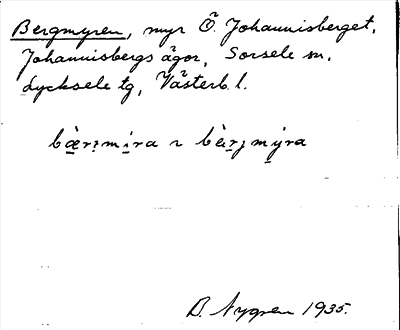 Bergmyren, myr Ö. Johannisberget,
Johannisbergs ägor, Sorsele sn,
Lycksele tg, Västerb. l.
B. Nygren 1935.